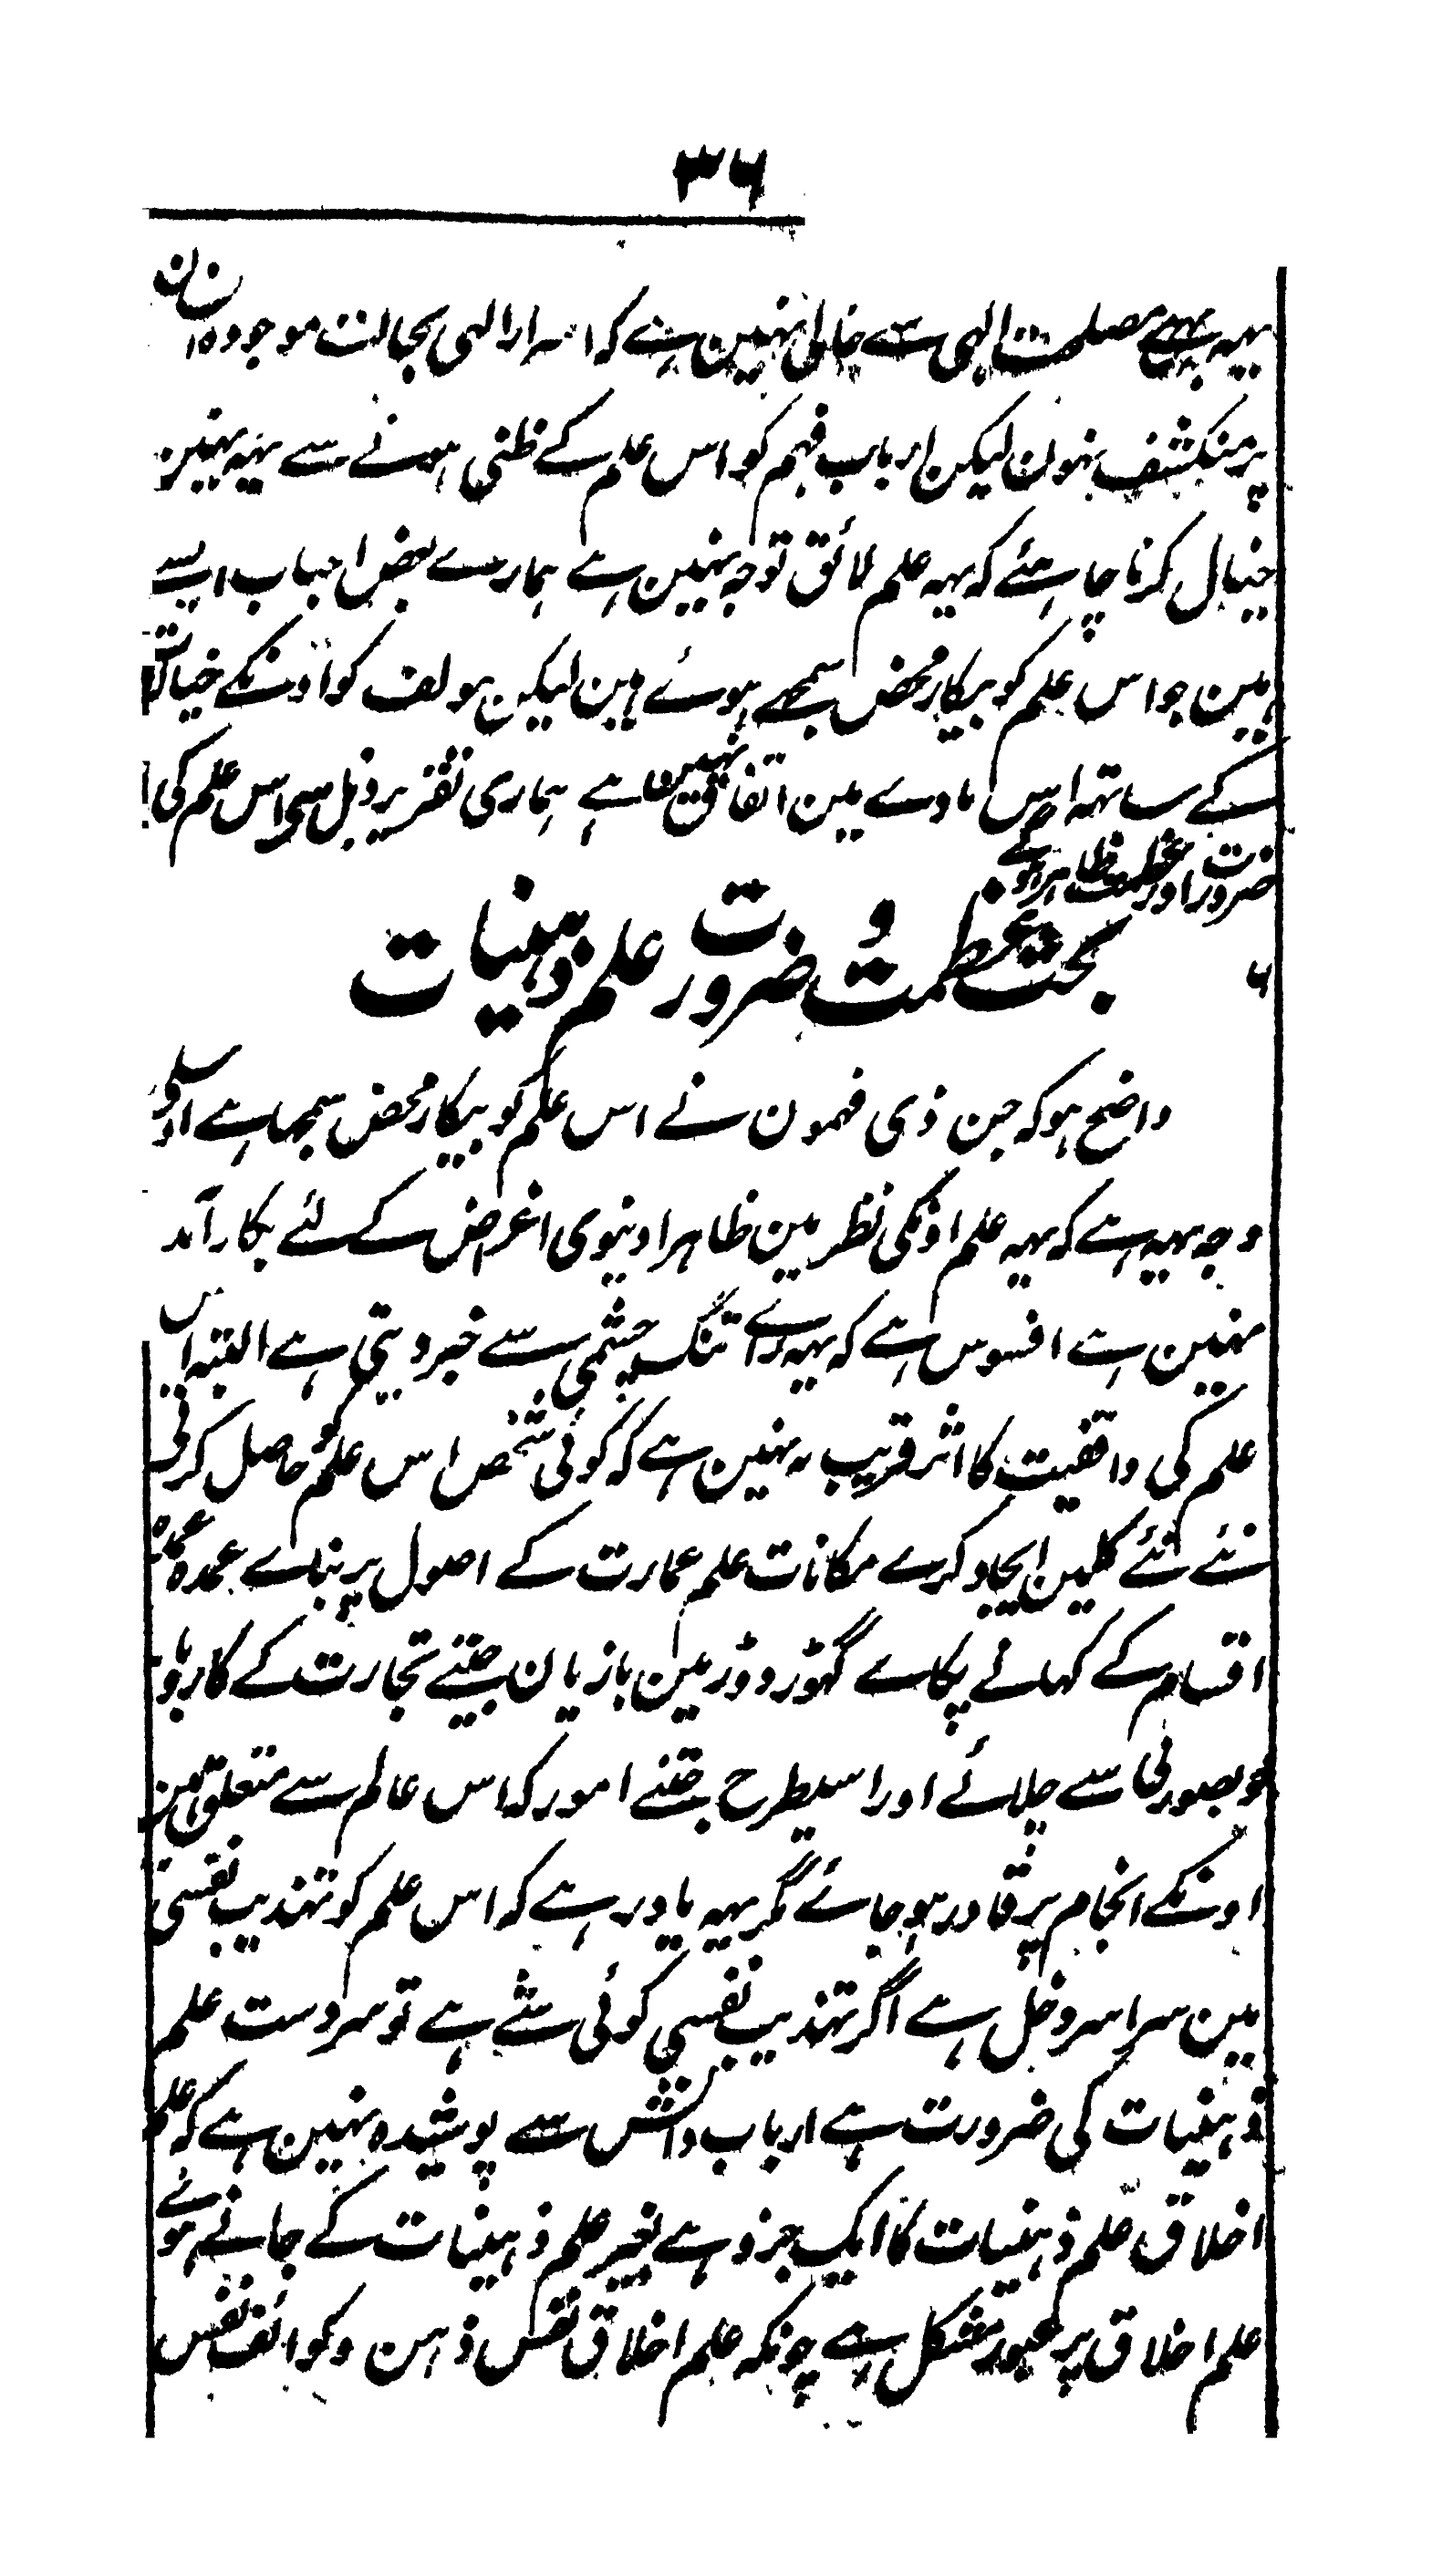 ۳۶
یہہ بہی مصلحت الہی سے خالی نہین ہے کہ اسرار الہی بحالت موجودہ انسان
پر منکشف نہون لیکن ارباب فہم کو اس علم کے ظنی ہونے سے یہہ نہین
خیال کرنا چاہئے کہ یہہ علم لائق توجہ نہین ہے ہمارے بعض احباب ایسے
ہین جو اس علم کو بیکار محض سمجھے ہوئے ہین لیکن مولف کو اونکے خیالات
کے ساتہہ اس مادے مین اتفاق نہین ہے ہماری تقریر ذیل سی اس علم کی
ضرورت اور عظمت ظاہر ہوگی
۶ بحث عظمت و ضرورت علم ذہنیات
واضح ہو کہ جن ذی فہمون نے اس علم کو بیکار محض سمجہا ہے اوسکی
وجہ یہہ ہے کہ یہہ علم اونکی نظر مین ظاہرا دنیوی اغراض کے لئے بکار آمد
نہین ہے افسوس ہے کہ یہہ راے تنگ چشمی سے خبر دیتی ہے البتہ اس
علم کی واقفیت کا اثر قریب یہ نہین ہے کہ کوئی شخص اس علم کو حاصل کرکی
نئے نئے کلین ایجاد کرے مکانات علم عمارت کے اصول پر بناے عمدہ عمدہ
اقسام کے کہانے پکاے گہوڑ دوڑ مین بازیان جیتے تجارت کے کاربار
خوبصورتی سے چلائے اور اسیطرح جتنے امور کہ اس عالم سے متعلق ہین
اونکے انجام پر قادر ہو جائے مگر یہہ یاد رہے کہ اس علم کو تہذیب نفسی
مین سراسر دخل ہے اگر تہذیب نفسی کوئی شے ہے تو سردست علم
ذہنیات کی ضرورت ہے ارباب دانش سے پوشیدہ نہین ہے کہ علم
اخلاق علم ذہنیات کا ایک جزو ہے بغیر علم ذہنیات کے جانے ہوئے
علم اخلاق پر عبور مشکل ہے چونکہ علم اخلاق نفس ذہن و کوائف نفس